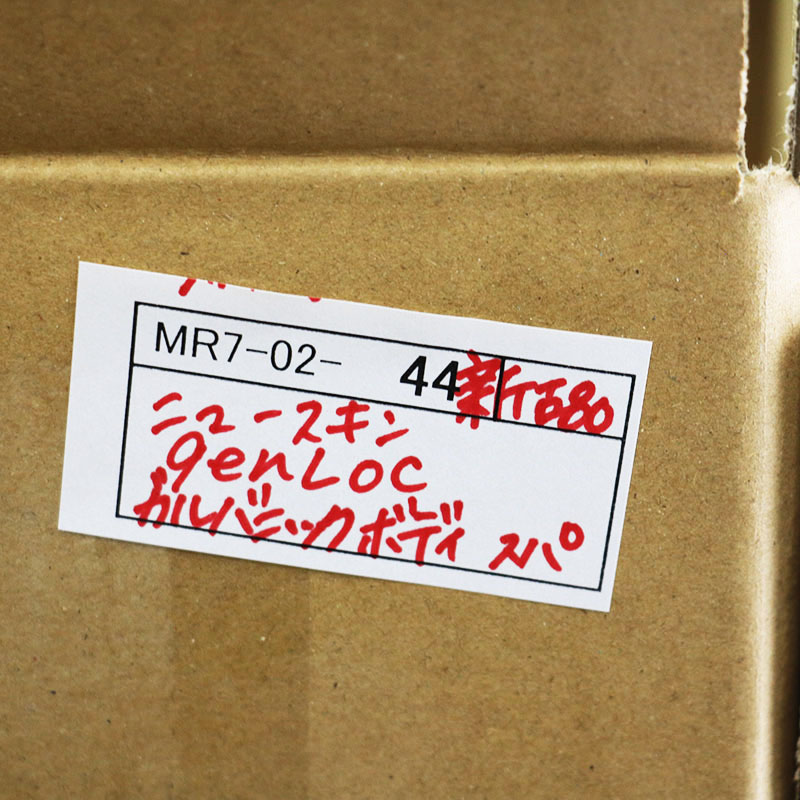 MR7-02- 44 新1680
ニュースキン
genLoc
ガルバニックボディ スパ